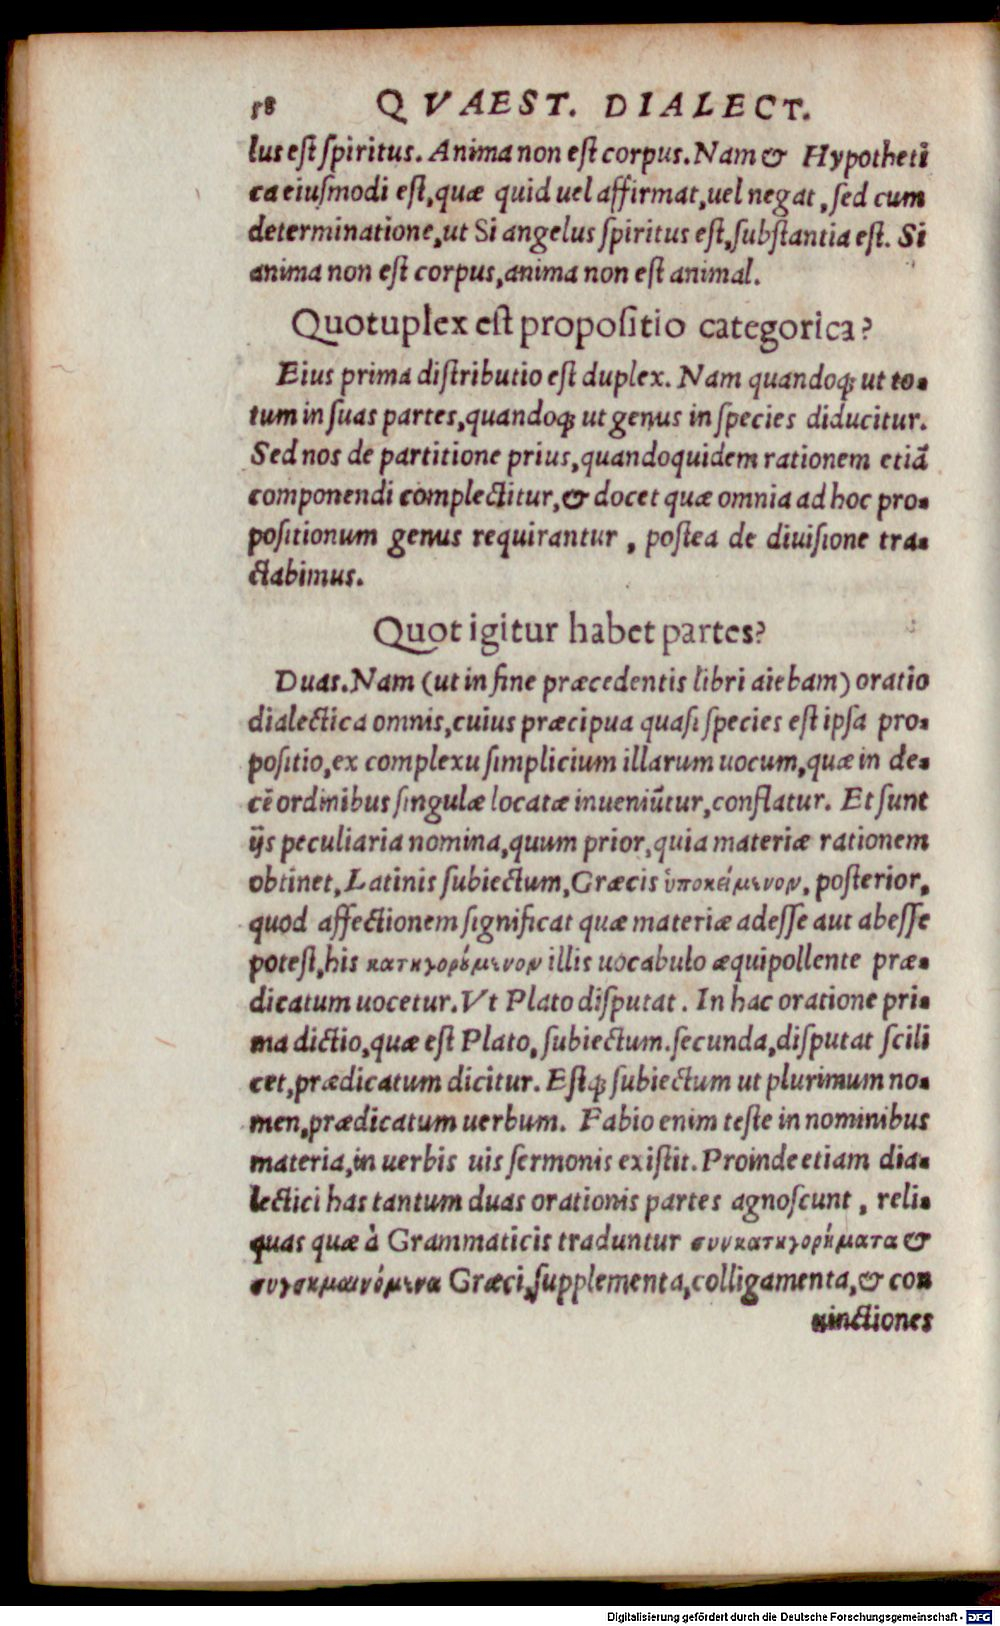 58 QVAEST. DIALECT.
lus est spiritus. Anima non est corpus. Nam & Hypotheti
ca eiusmodi est, quæ quid uel affirmat, uel negat, sed cum
determinatione, ut Si angelus spiritus est, substantia est. Si
anima non est corpus, anima non est animal.
Quotuplex est propositio categorica?
Eius prima distributio est duplex. Nam quandoq; ut to-
tum in suas partes, quandoq; ut genus in species diducitur.
Sed nos de partitione prius, quandoquidem rationem etiã
componendi complectitur, & docet quæ omnia ad hoc pro-
positionum genus requirantur, postea de diuisione tra-
ctabimus.
Quot igitur habet partes?
Duas. Nam (ut in fine præcedentis libri aiebam) oratio
dialectica omnis, cuius præcipua quasi species est ipsa pro-
positio, ex complexu simplicium illarum uocum, quæ in de-
cẽ ordinibus singulæ locatæ inueniũtur, conflatur. Et sunt
ijs peculiaria nomina, quum prior, quia materiæ rationem
obtinet, Latinis subiectum, Græcis ὑποκείμενον, posterior,
quod affectionem significat quæ materiæ adesse aut abesse
potest, his κατηγορούμενον illis uocabulo æquipollente præ-
dicatum uocetur. Vt Plato disputat. In hac oratione pri-
ma dictio, quæ est Plato, subiectum. secunda, disputat scili
cet, prædicatum dicitur. Estq; subiectum ut plurimum no-
men, prædicatum uerbum. Fabio enim teste in nominibus
materia, in uerbis uis sermonis existit. Proinde etiam dia-
lectici has tantum duas orationis partes agnoscunt, reli-
quas quæ à Grammaticis traduntur συνκατηγορήματα &
συγσημαινόμενα Græci, supplementa, colligamenta, & con
uinctiones
Digitalisierung gefördert durch die Deutsche Forschungsgemeinschaft - DFG